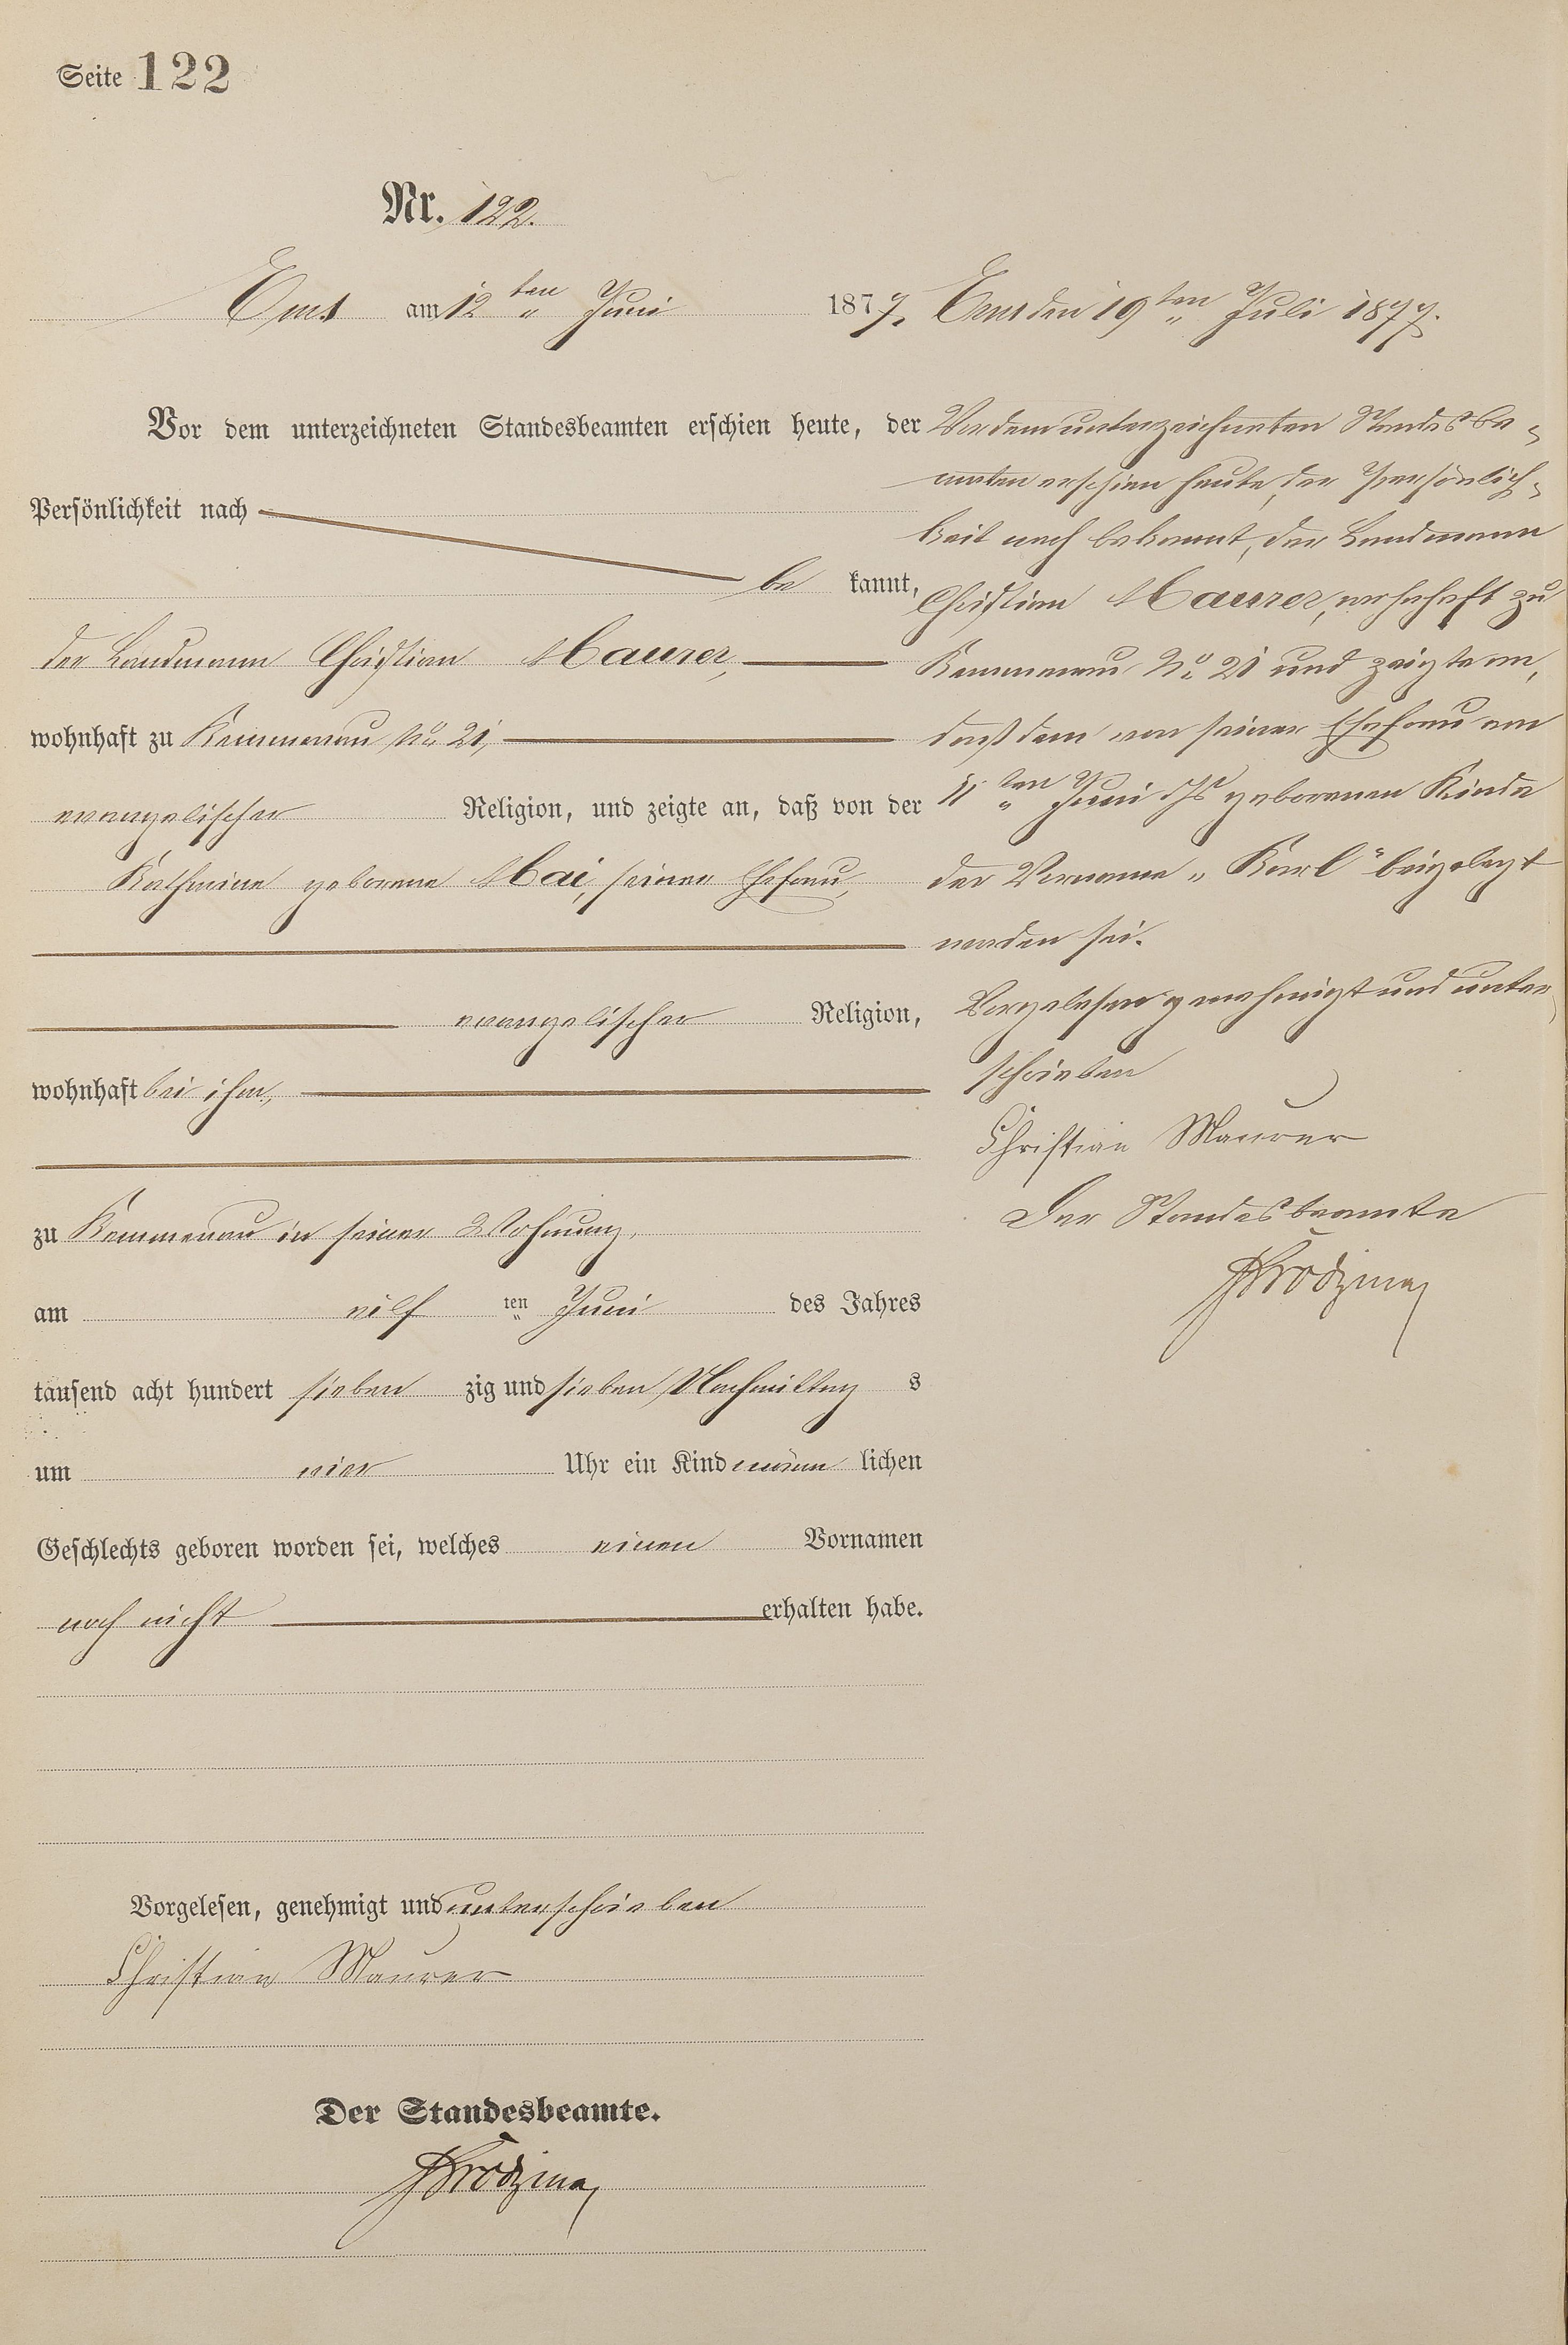 Seite 122
Nr. 122.
Ems am 12ten Juni 1877.
Vor dem unterzeichneten Standesbeamten erschien heute, der
Persönlichkeit nach
be kannt,
der Landmann Christian Maurer,
wohnhaft zu Kemmenau No 21,
evangelischer Religion, und zeigte an, daß von der
Katharine geborene Mai, seiner Ehefrau,
evangelischer Religion,
wohnhaft bei ihm,
zu Kemmenau in seiner Wohnung,
am eilf ten Juni des Jahres
tausend acht hundert sieben zig und sieben Nachmittag s
um vier Uhr ein Kind männ lichen
Geschlechts geboren worden sei, welches einen Vornamen
noch nicht erhalten habe.
Vorgelesen, genehmigt und unterschrieben
Christian Maurer
Der Standesbeamte.
Ems den 19ten Juli 1877.
Vor dem unterzeichneten Standesbe-
amten erschien heute, der Persönlich-
keit nach bekannt, der Landmann
Christian Maurer, wohnhaft zu
Kemmenau No 21 und zeigte an,
daß dem von seiner Ehefrau am
11ten Juni d. Js geborenen Kinde
der Vorname „Karl“ beigelegt
worden sei.
Vorgelesen genehmigt und unter
schrieben
Christian Maurer
Der Standesbeamte